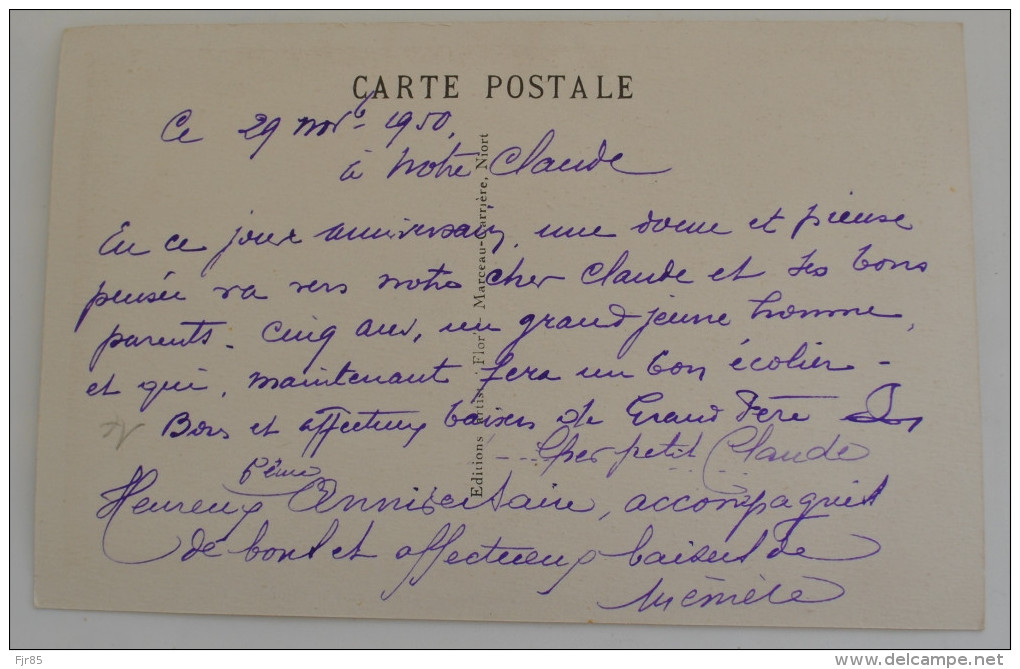 CARTE POSTALE
Ce 29 novb 1950,
à notre Claude
En ce jour anniversaire, une douce et pieuse
pensée va vers notre cher Claude et ses bons
parents. Cinq ans, un grand jeune homme,
et qui, maintenant fera un bon écolier -
Bons et affectueux baisers de Grand Père
Cher petit Claude
5ème
Heureux Anniversaire, accompagnés
de bons et affectueux baisers de
Mémère
Editions Florit Marceau-Carrière, Niort
Fjr85
www.delcampe.net